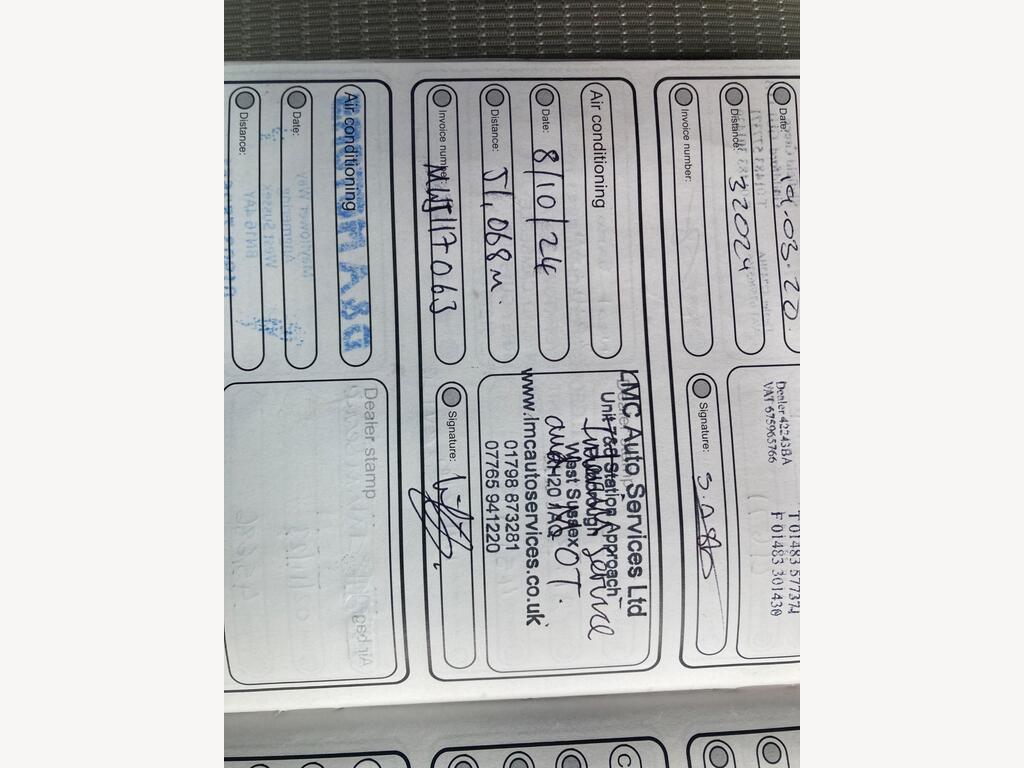 Date: 9.03.20
Distance: 32024
Invoice number:
Dealer 42243BA
VAT 675965766
T 01483 577374
F 01483 301430
Signature:
Air conditioning
Date: 8/10/24
Distance: 51,068 m.
Invoice number: MWJ117063
LMC Auto Services Ltd
Unit 7&8 Station Approach
West Sussex
RH20 1AQ
www.lmcautoservices.co.uk
01798 873281
07765 941220
Service
and MOT.
Signature:
Air conditioning
Date:
Distance:
Dealer stamp